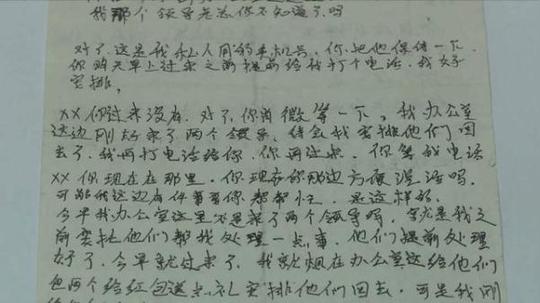 我那个领导是总你不知道了吗
对了.这是我私人用的手机号.你把他保信一下.
你明天早上过来之前提前给我打个电话.我好
安排.
XX你过来没有.对了.你稍微等一下.我办公室
这边刚好来了两个领导.待会我安排他们回
去了.我再打电话给你.你再过来.你等我电话
XX你现在在那里.你现在你那边方便说话吗.
可能我这边有件事要你帮帮忙.是这样的.
今早我办公室这里不是来了两个领导吗.就是我之
前安排他们帮我处理一点事.他们提前处理
好了.今早就过来了.我就烟在办公室这给他们
包两个给红包送点礼安排他们回去.可是我刚